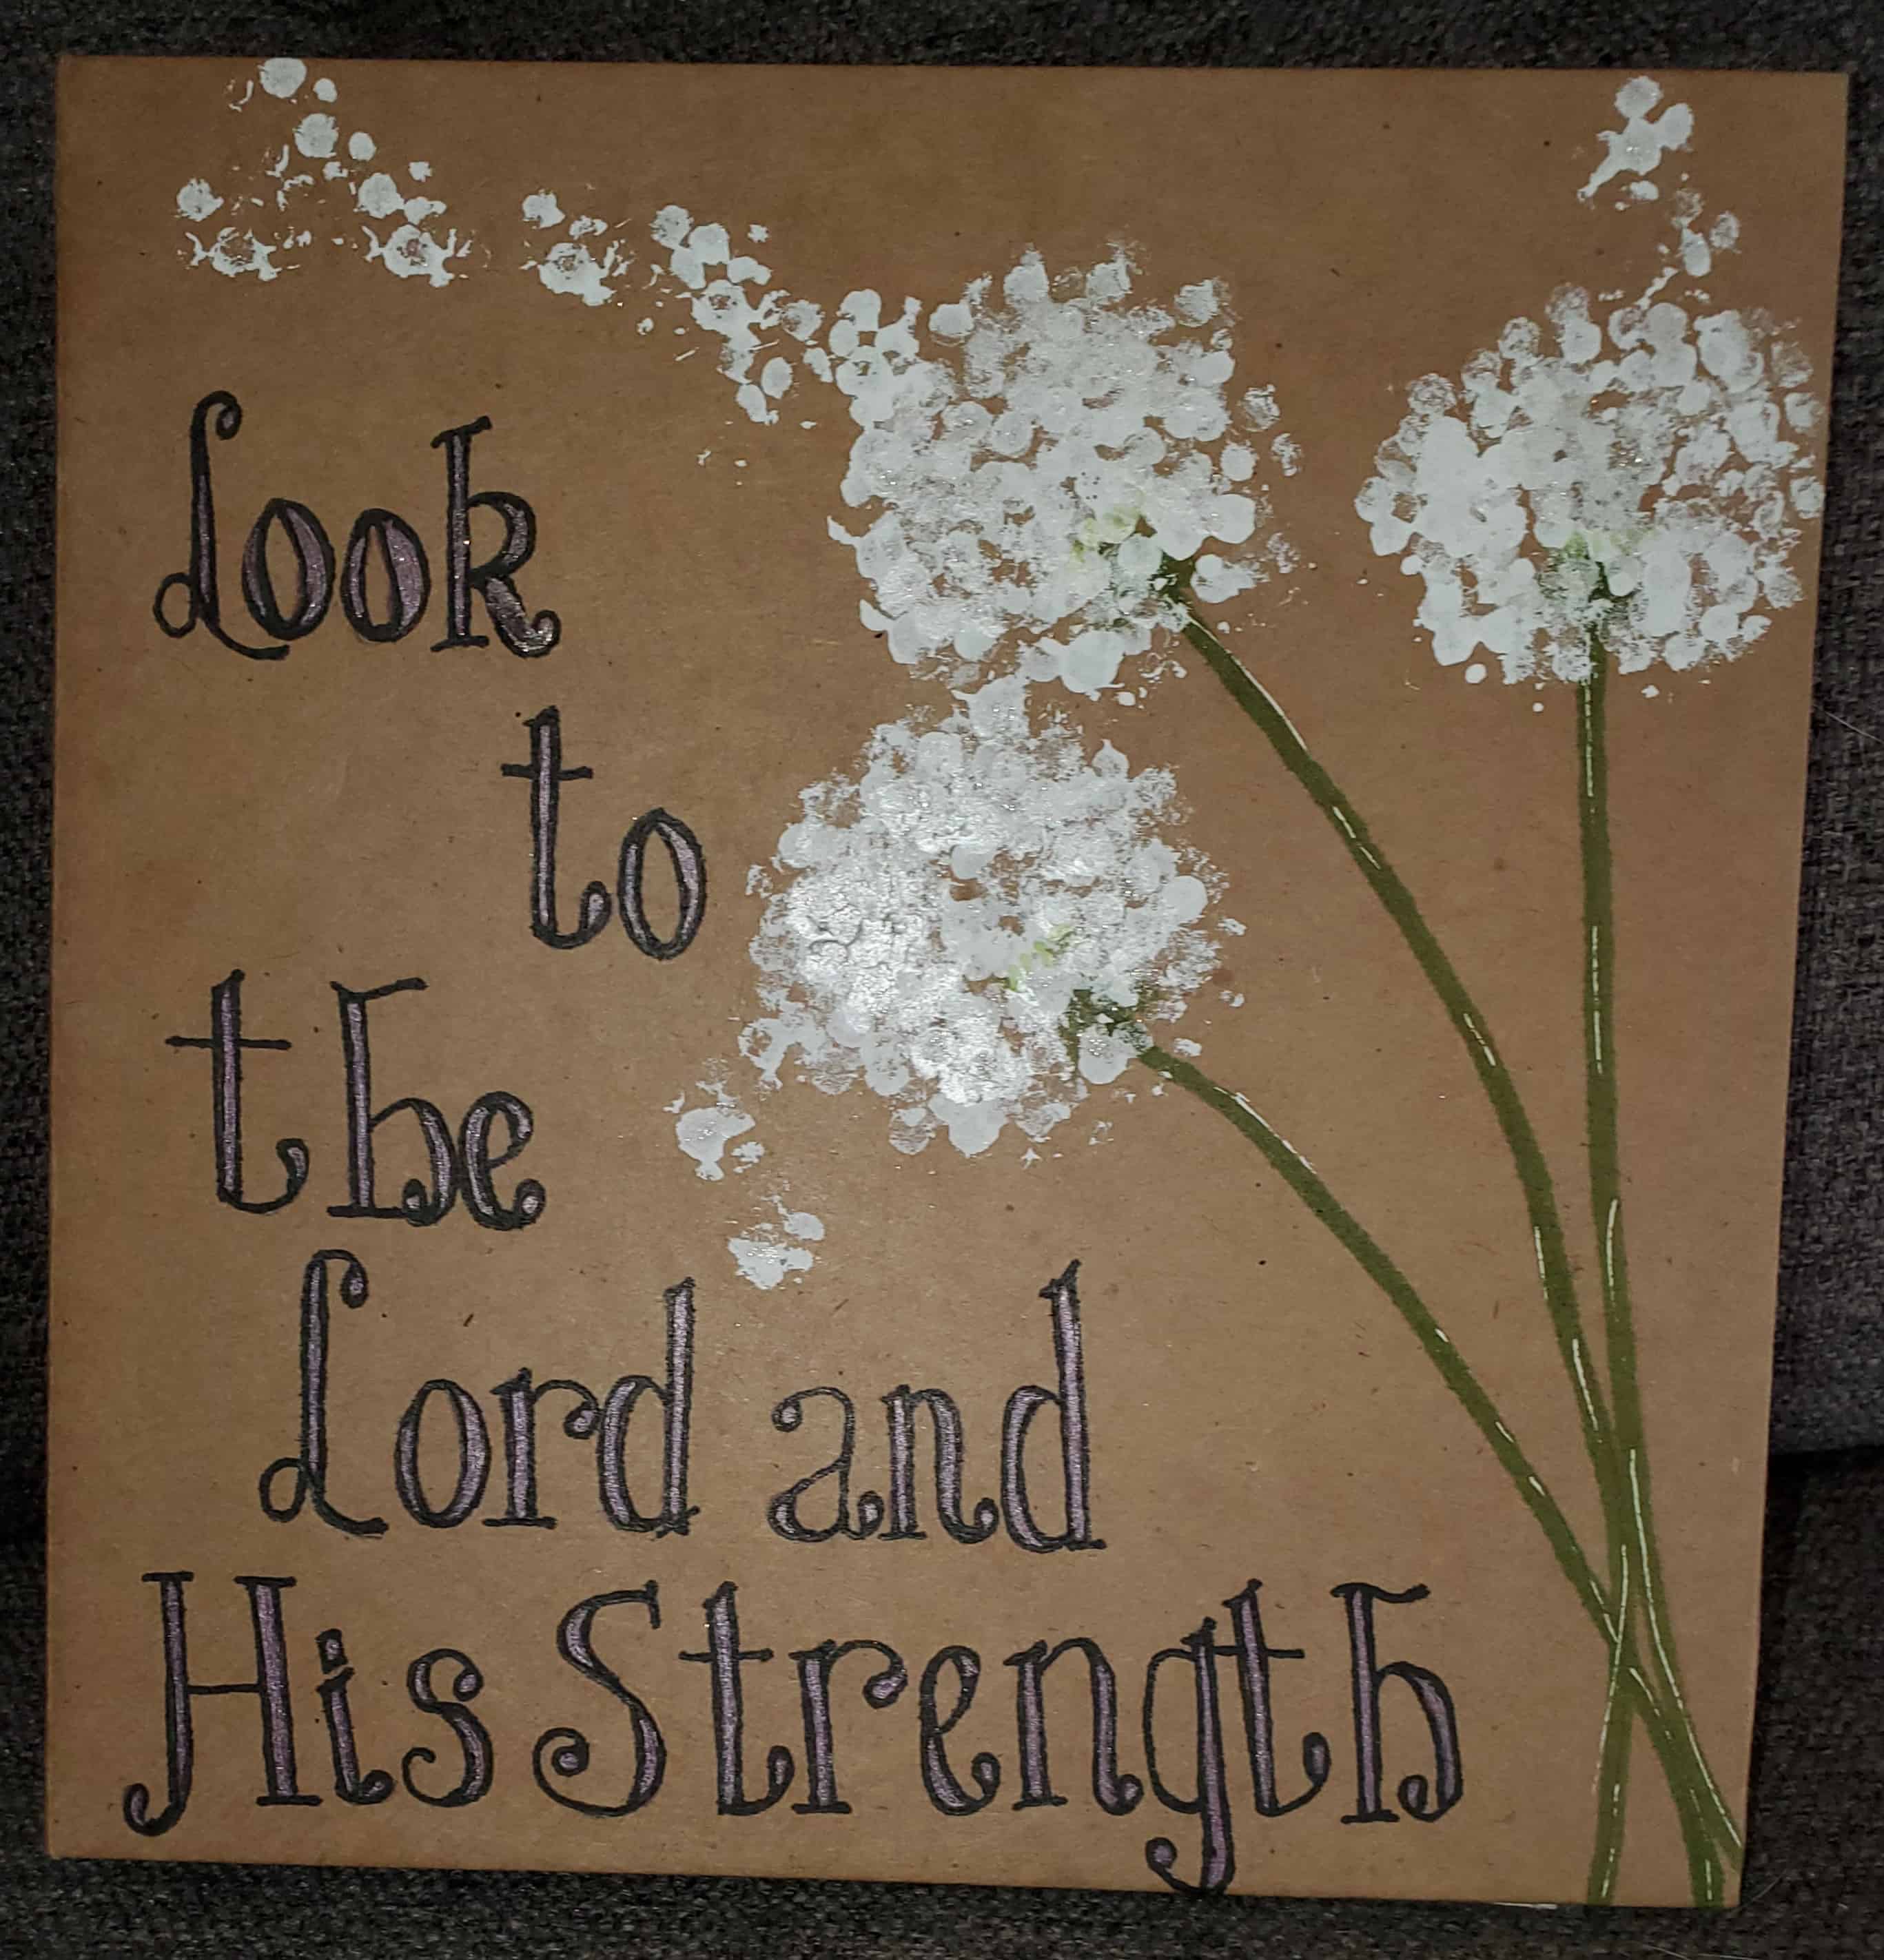 Look
to
the
Lord and
His Strength